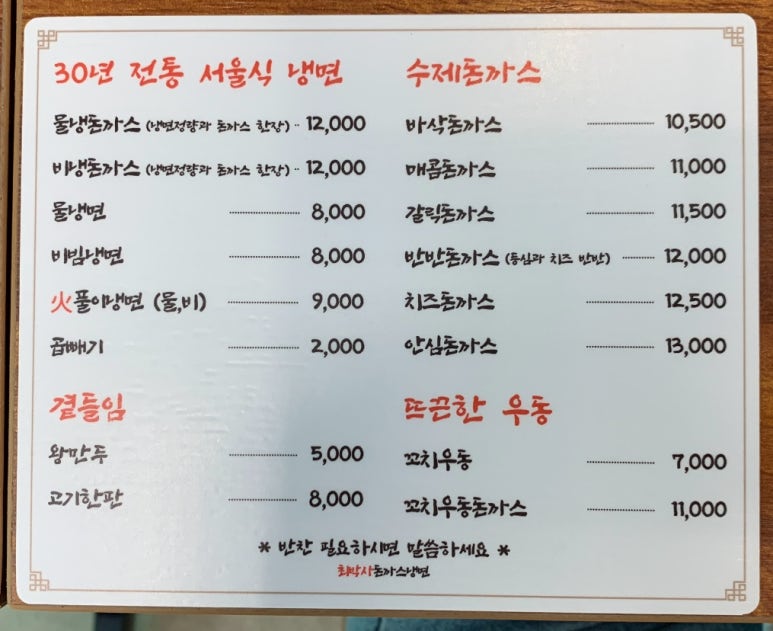 30년 전통 서울식 냉면
물냉돈까스 (냉면정량과 돈까스 한장) 12,000
비냉돈까스 (냉면정량과 돈까스 한장) 12,000
물냉면 8,000
비빔냉면 8,000
火풀이냉면 (물,비) 9,000
곱빼기 2,000
곁들임
왕만두 5,000
고기한판 8,000
수제돈까스
바삭돈까스 10,500
매콤돈까스 11,000
갈릭돈까스 11,500
반반돈까스 (등심과 치즈 반반) 12,000
치즈돈까스 12,500
안심돈까스 13,000
뜨끈한 우동
꼬치우동 7,000
꼬치우동돈까스 11,000
* 반찬 필요하시면 말씀하세요 *
최박사돈까스냉면